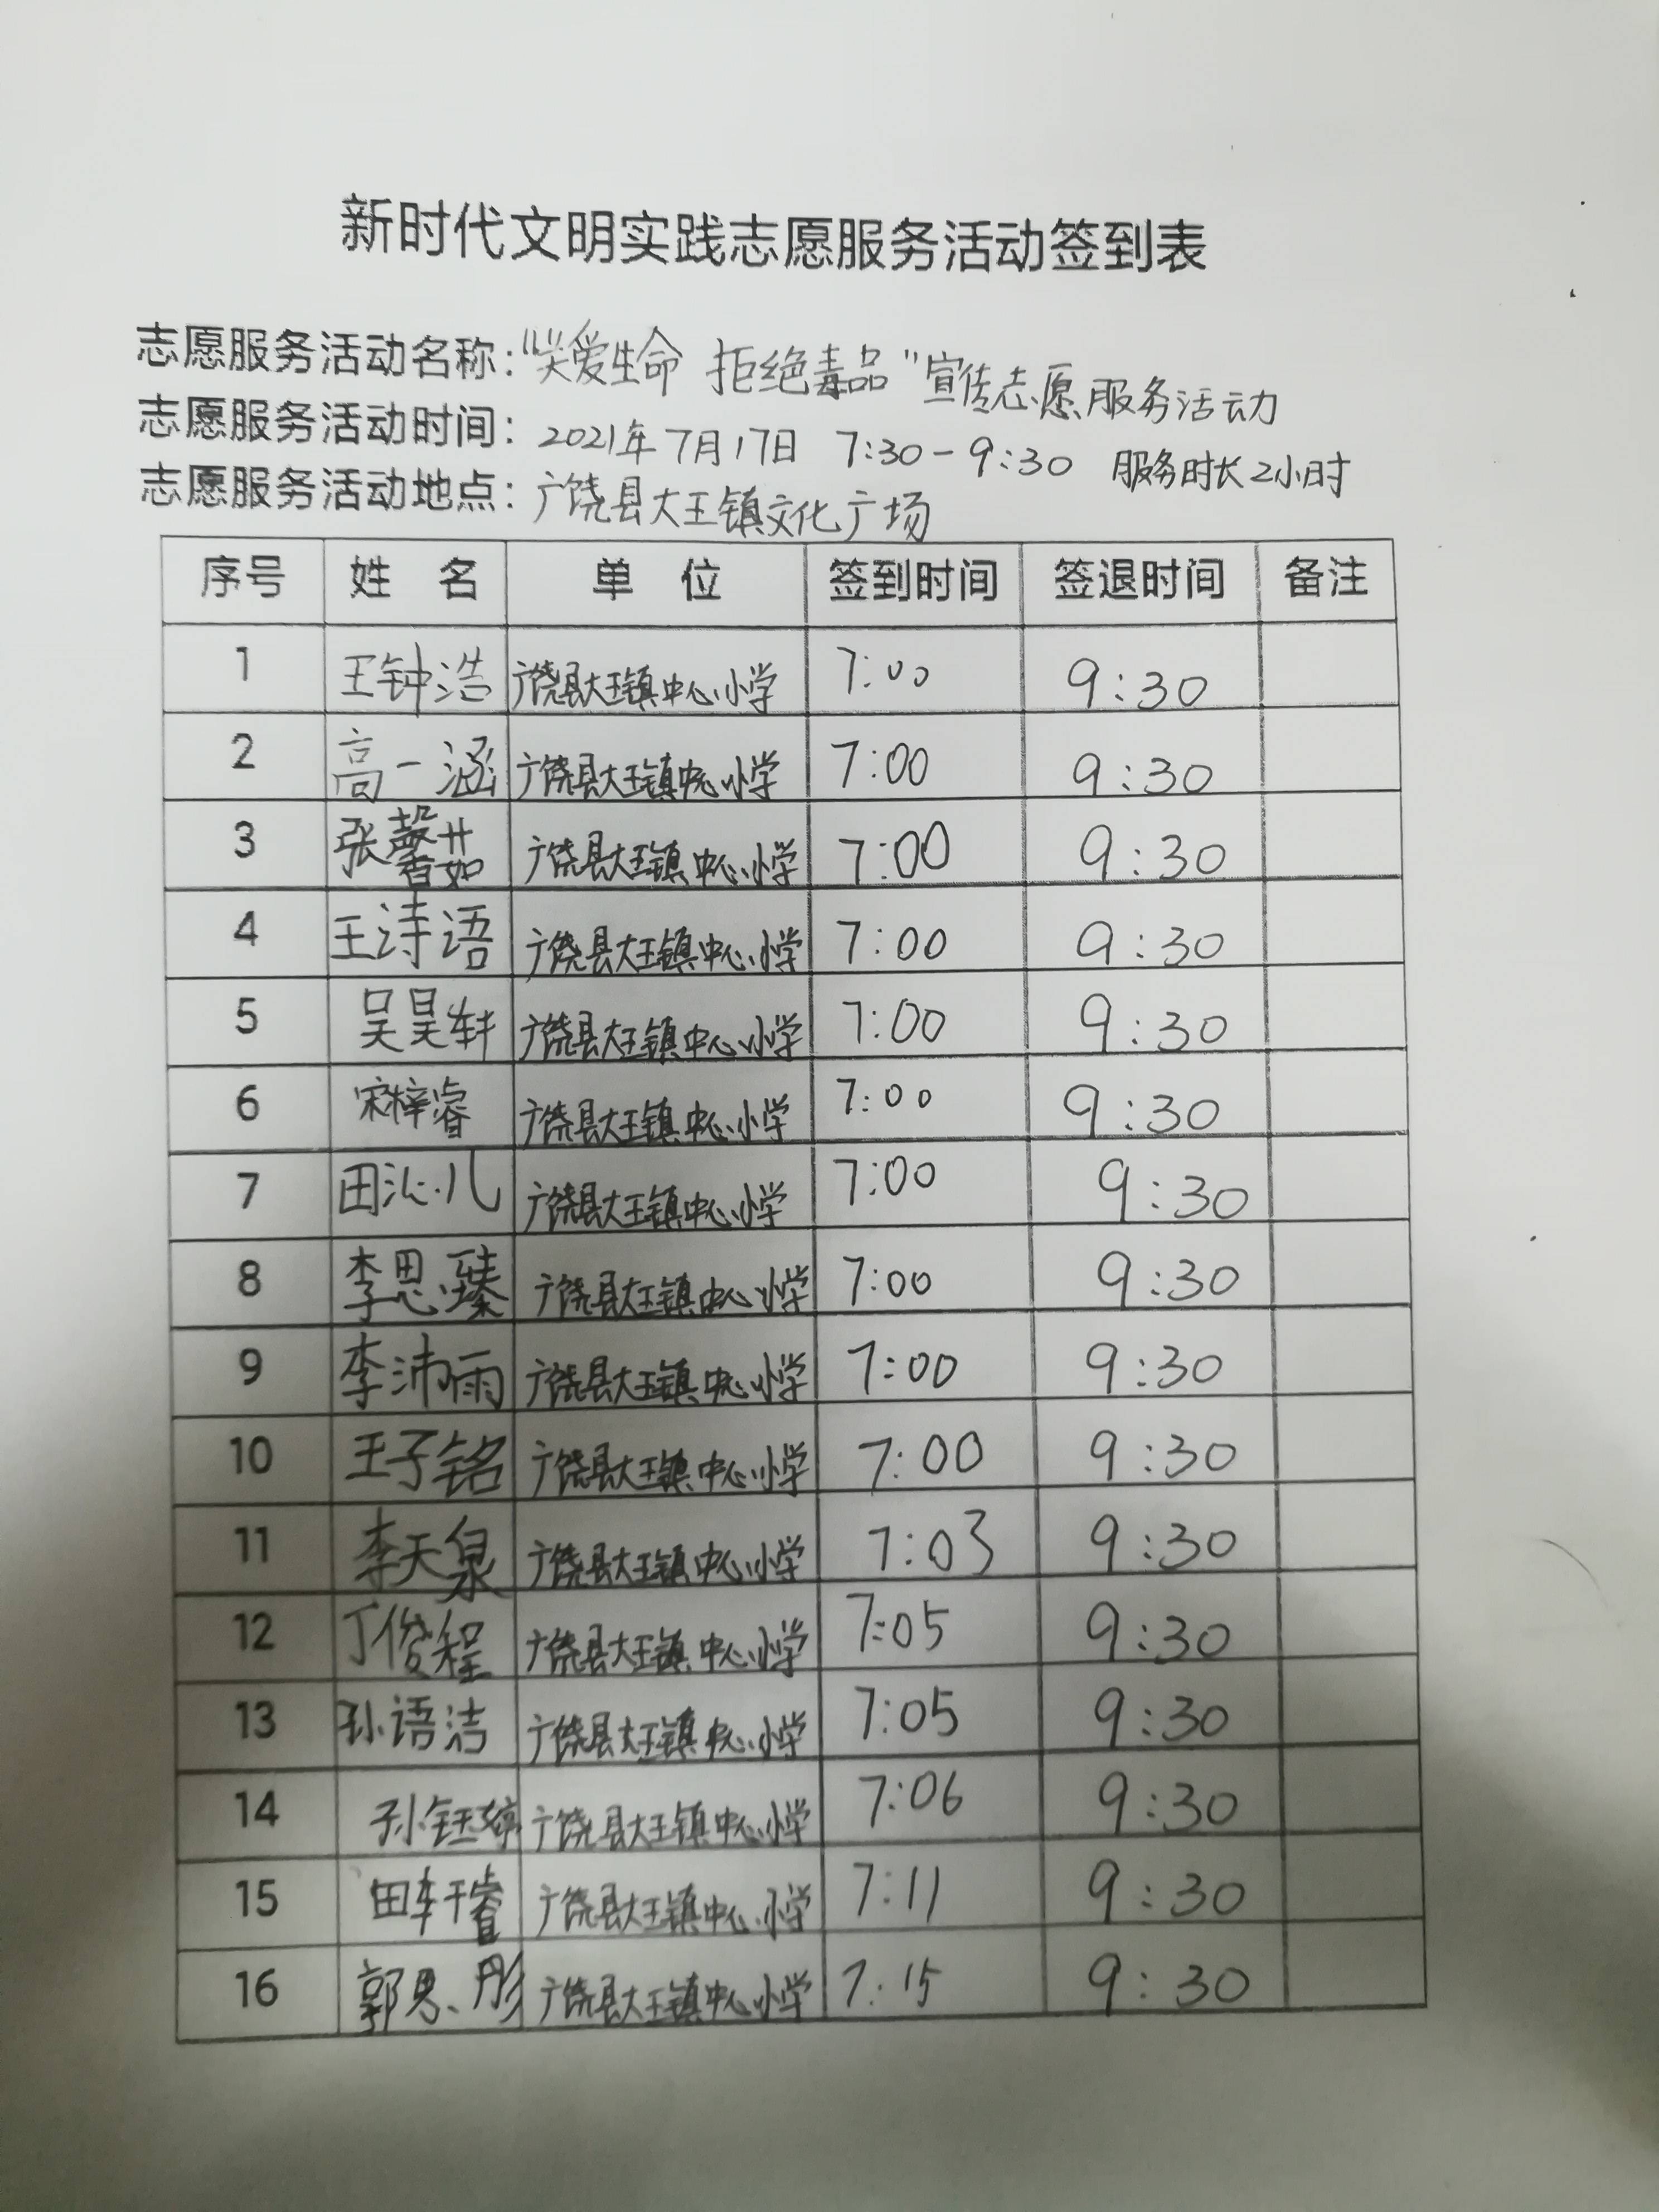 新时代文明实践志愿服务活动签到表
志愿服务活动名称：“关爱生命 拒绝毒品”宣传志愿服务活动
志愿服务活动时间：2021年7月17日 7:30-9:30 服务时长2小时
志愿服务活动地点：广饶县大王镇文化广场
序号 姓名 单位 签到时间 签退时间 备注
1 王钟浩 广饶县大王镇中心小学 7:00 9:30
2 高一涵 广饶县大王镇中心小学 7:00 9:30
3 张馨茹 广饶县大王镇中心小学 7:00 9:30
4 王诗语 广饶县大王镇中心小学 7:00 9:30
5 吴昊轩 广饶县大王镇中心小学 7:00 9:30
6 宋梓睿 广饶县大王镇中心小学 7:00 9:30
7 田沁儿 广饶县大王镇中心小学 7:00 9:30
8 李思臻 广饶县大王镇中心小学 7:00 9:30
9 李沛雨 广饶县大王镇中心小学 7:00 9:30
10 王子铭 广饶县大王镇中心小学 7:00 9:30
11 李天泉 广饶县大王镇中心小学 7:03 9:30
12 丁俊程 广饶县大王镇中心小学 7:05 9:30
13 孙语洁 广饶县大王镇中心小学 7:05 9:30
14 孙钰婷 广饶县大王镇中心小学 7:06 9:30
15 田轩睿 广饶县大王镇中心小学 7:11 9:30
16 郭思彤 广饶县大王镇中心小学 7:15 9:30